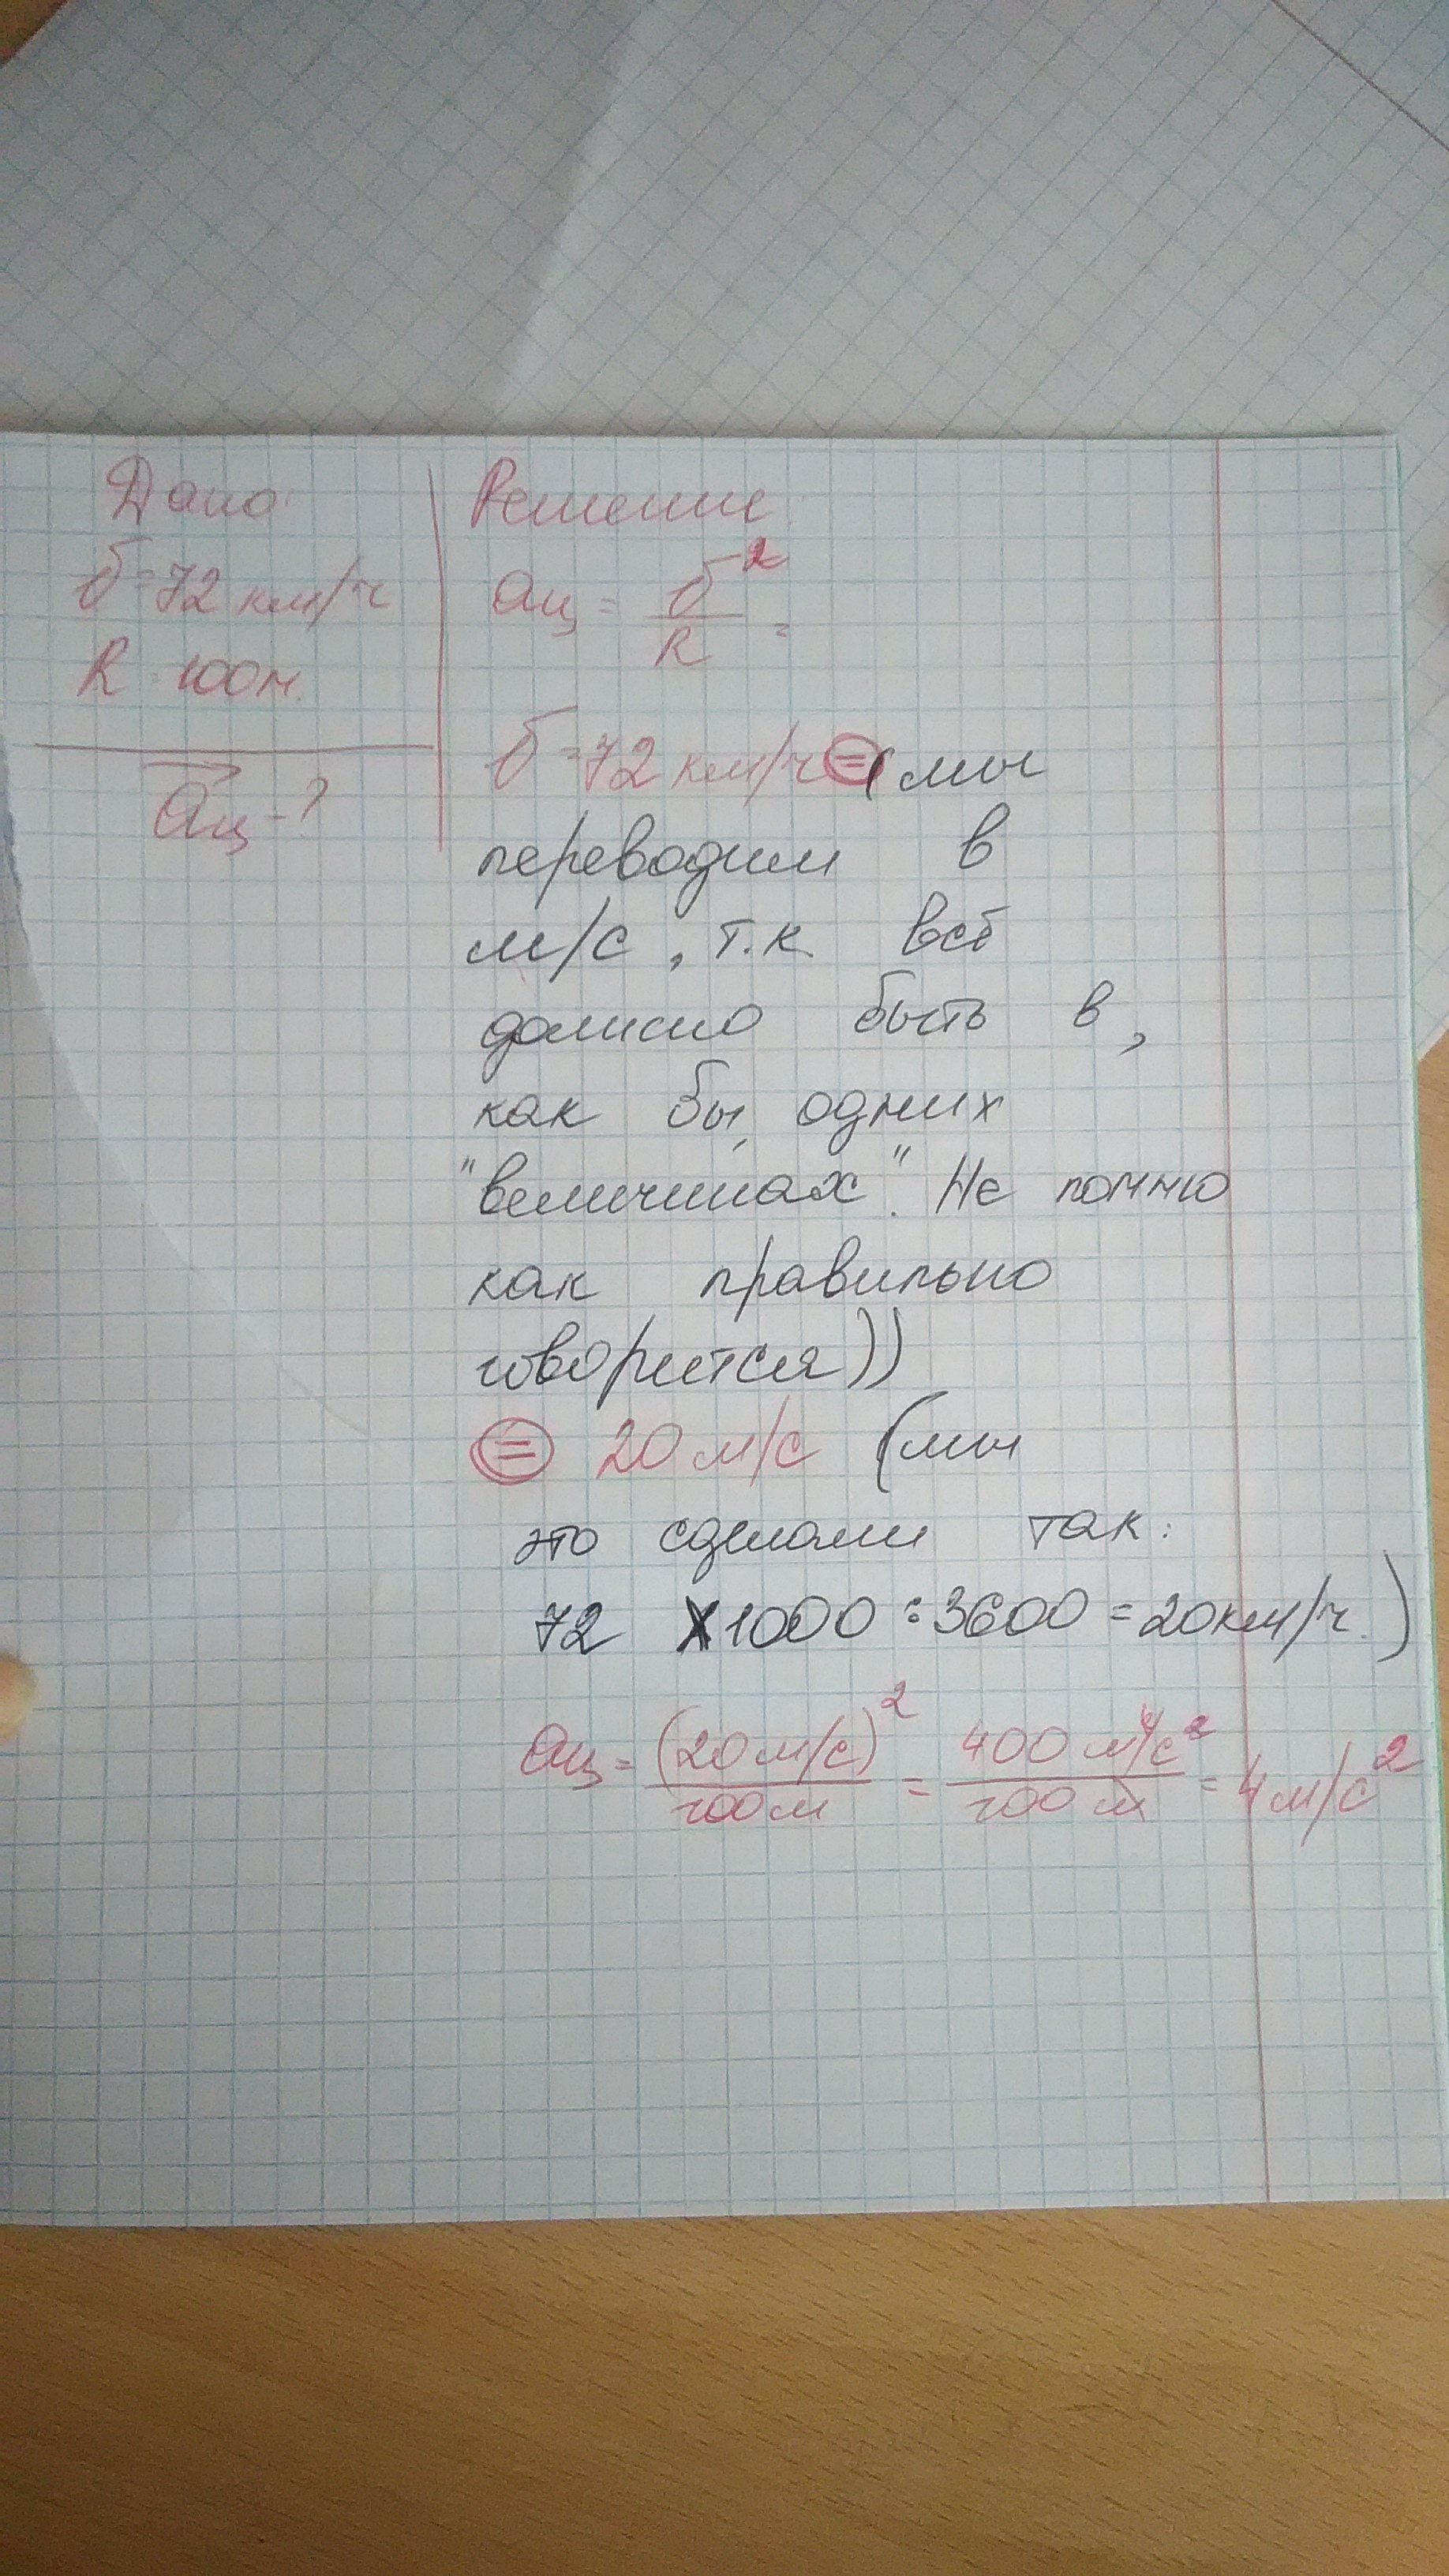 Дано:
υ = 72 км/ч
R = 100 м.
aц - ?
Решение:
aц = υ² / R =
υ = 72 км/ч = (мы
переводим в
м/с, т.к всё
должно быть в,
как бы, одних
"величинах". Не помню
как правильно
говорится))
= 20 м/с (мы
это сделали так:
72 X 1000 : 3600 = 20 км/ч.)
aц = (20 м/с)² / 100 м = 400 м²/с² / 100 м = 4 м/с²